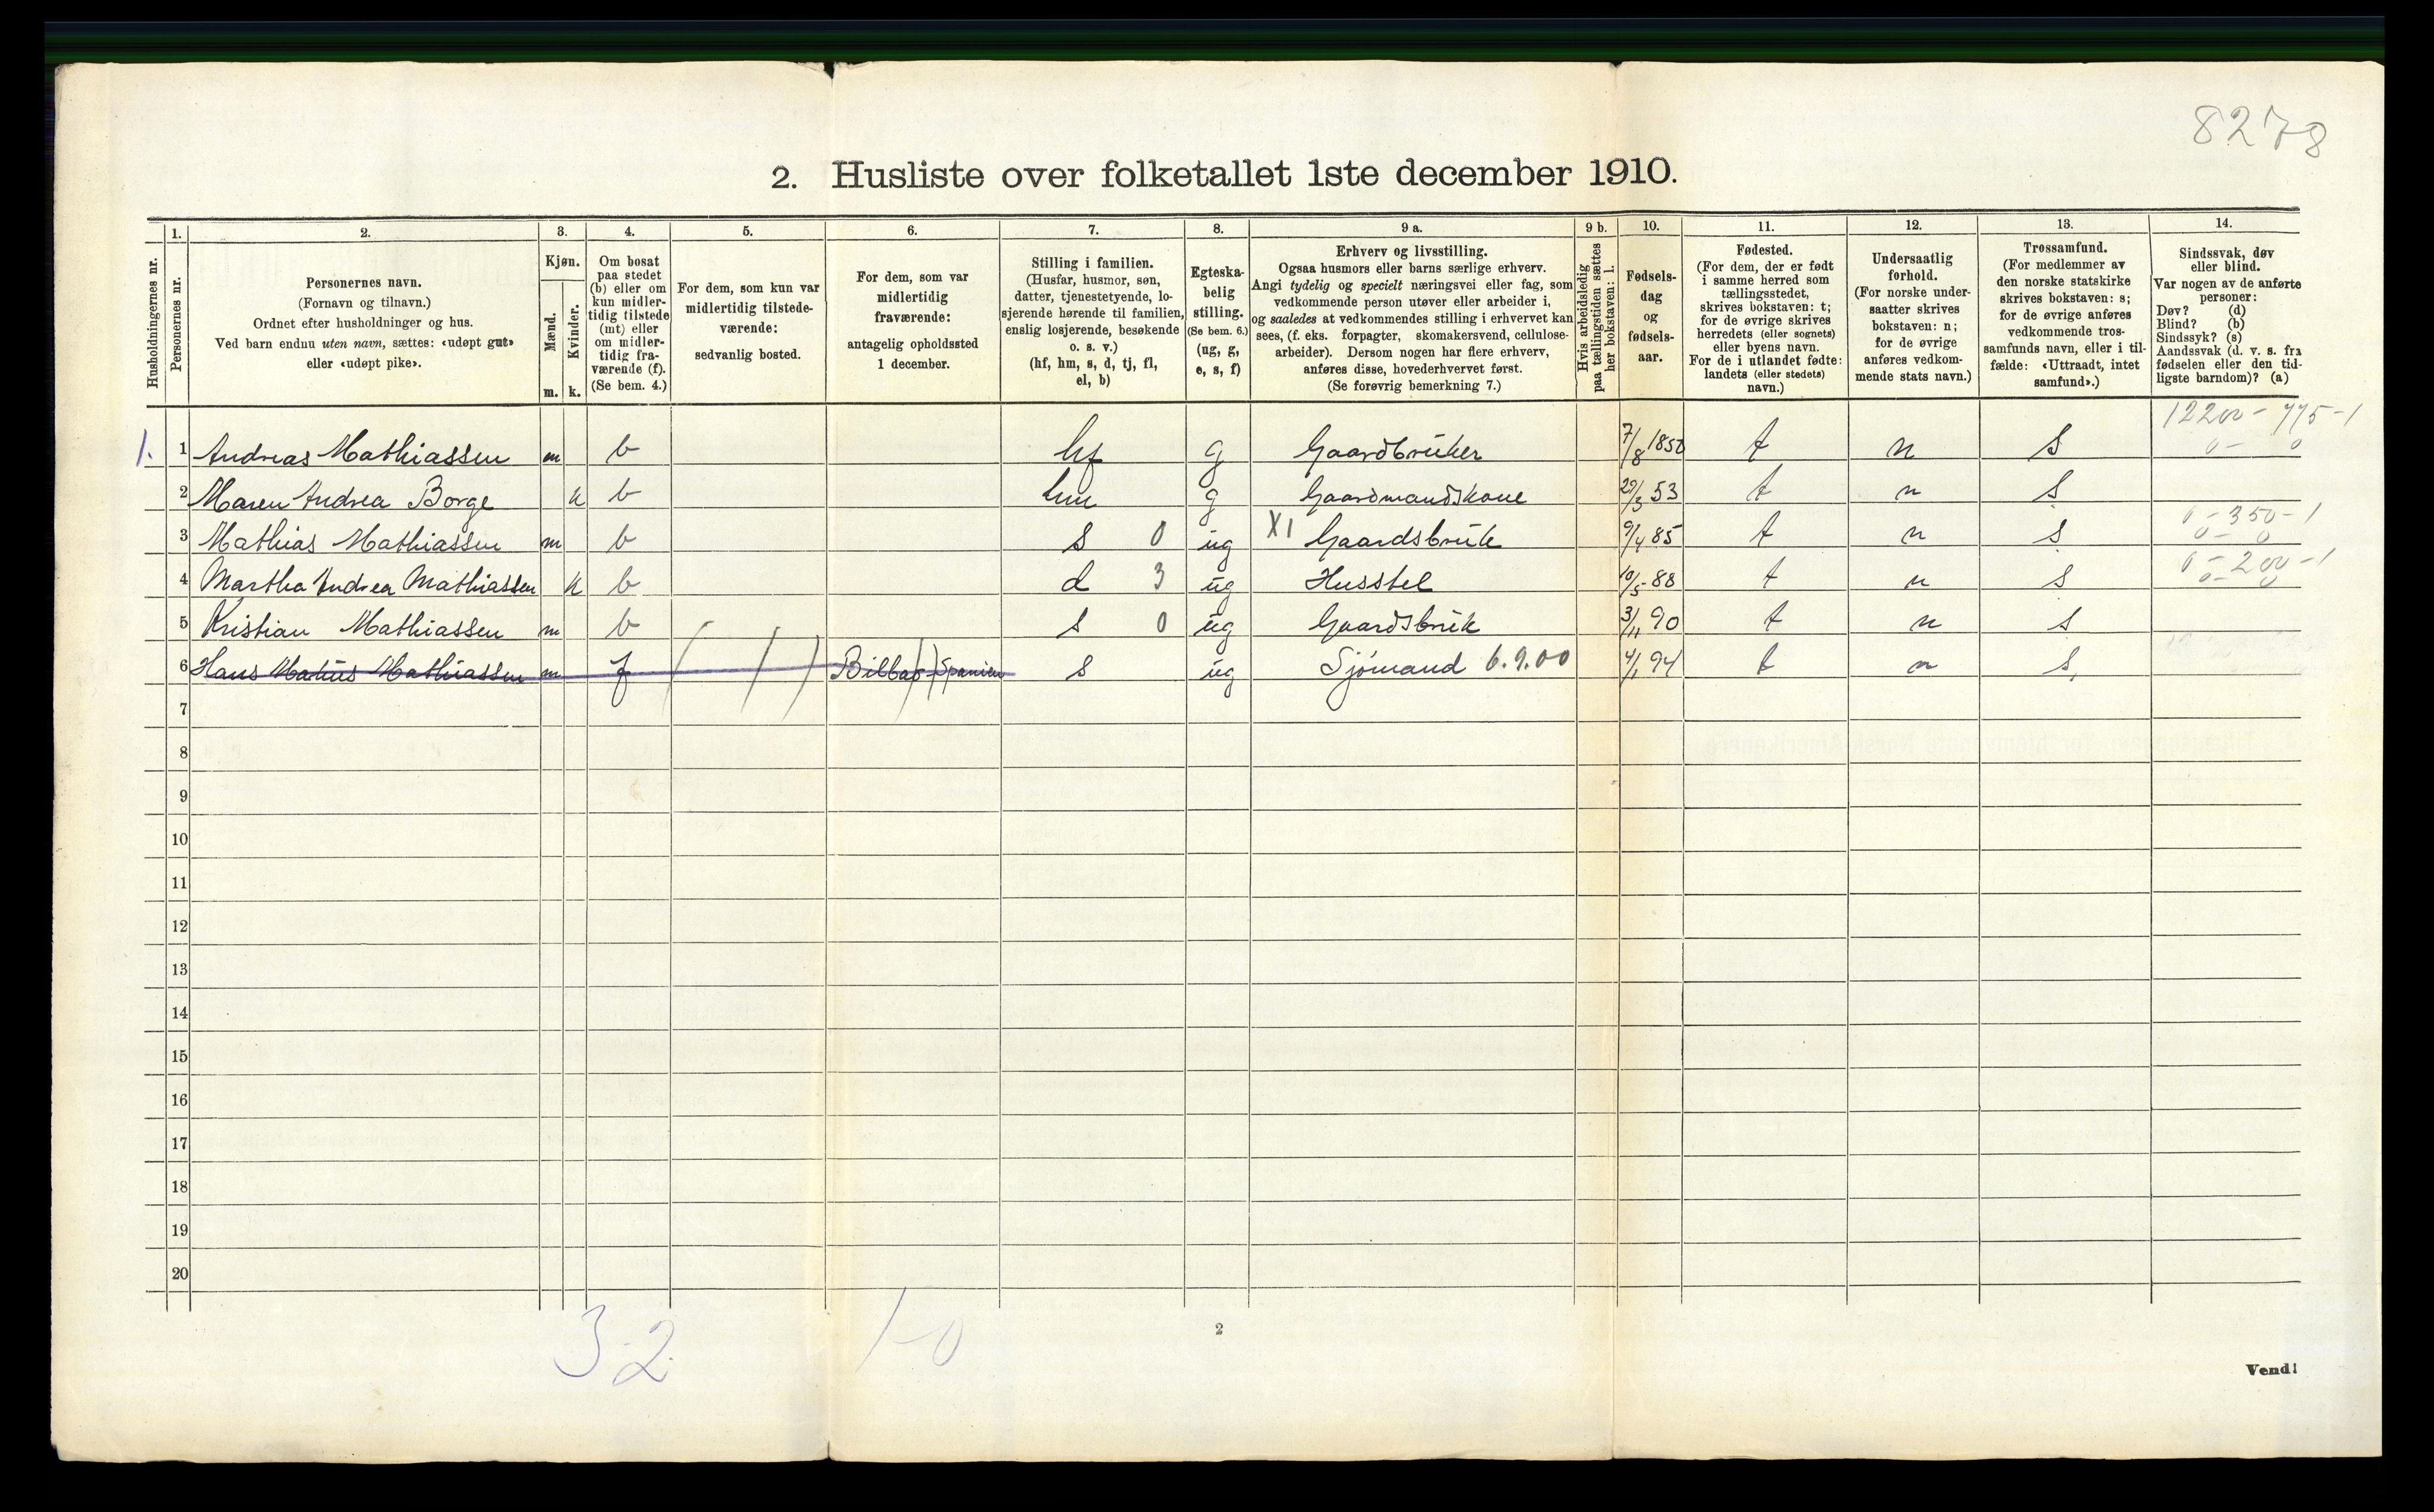 8278
2. Husliste over folketallet 1ste december 1910.
Husholdningernes nr.
1.
Personernes nr.
2.
Personernes navn.
(Fornavn og tilnavn.)
Ordnet efter husholdninger og hus.
Ved barn endnu uten navn, sættes: «udøpt gut»
eller «udøpt pike».
3.
Kjøn.
Mænd.
m.
Kvinder.
k.
4.
Om bosat
paa stedet
(b) eller om
kun midler-
tidig tilstede
(mt) eller
om midler-
tidig fra-
værende (f).
(Se bem. 4.)
5.
For dem, som kun var
midlertidig tilstede-
værende:
sedvanlig bosted.
6.
For dem, som var
midlertidig
fraværende:
antagelig opholdssted
1 december.
7.
Stilling i familien.
(Husfar, husmor, søn,
datter, tjenestetyende, lo-
sjerende hørende til familien,
enslig losjerende, besøkende
o. s. v.)
(hf, hm, s, d, tj, fl,
el, b)
8.
Egteska-
belig
stilling.
(Se bem. 6.)
(ug, g,
e, s, f)
9 a.
Erhverv og livsstilling.
Ogsaa husmors eller barns særlige erhverv.
Angi tydelig og specielt næringsvei eller fag, som
vedkommende person utøver eller arbeider i,
og saaledes at vedkommendes stilling i erhvervet kan
sees, (f. eks. forpagter, skomakersvend, cellulose-
arbeider). Dersom nogen har flere erhverv,
anføres disse, hovederhvervet først.
(Se forøvrig bemerkning 7.)
9 b.
Hvis arbeidsledig
paa tællingstiden sættes
her bokstaven: l.
10.
Fødsels-
dag
og
fødsels-
aar.
11.
Fødested.
(For dem, der er født
i samme herred som
tællingsstedet,
skrives bokstaven: t;
for de øvrige skrives
herredets (eller sognets)
eller byens navn.
For de i utlandet fødte:
landets (eller stedets)
navn.)
12.
Undersaatlig
forhold.
(For norske under-
saatter skrives
bokstaven: n;
for de øvrige
anføres vedkom-
mende stats navn.)
13.
Trossamfund.
(For medlemmer av
den norske statskirke
skrives bokstaven: s;
for de øvrige anføres
vedkommende tros-
samfunds navn, eller i til-
fælde: «Uttraadt, intet
samfund».)
14.
Sindssvak, døv
eller blind.
Var nogen av de anførte
personer:
Døv? (d)
Blind? (b)
Sindssyk? (s)
Aandssvak (d. v. s. fra
fødselen eller den tid-
ligste barndom)? (a)
12200 - 775 - 1
1. 1 Andreas Mathiassen m b hf g Gaardbruker 7/8 1850 t n s 0 - 0
2 Maren Andrea Borge k b hm g Gaardmandskone 29/3 53 t n s
0 - 350 - 1
3 Mathias Mathiassen m b s 0 ug X1 Gaardsbruk 9/4 85 t n s 0 - 0
0 - 200 - 1
4 Martha Andrea Mathiassen k b d 3 ug Husstel 10/5 88 t n s 0 - 0
5 Kristian Mathiassen m b s 0 ug Gaardsbruk 3/11 90 t n s
6 Hans Matius Mathiassen m f Bilbao Spanien s ug Sjömand 6.9.00 4/1 94 t n s
7
8
9
10
11
12
13
14
15
16
17
18
19
20
3-2 1-0
2
Vend!